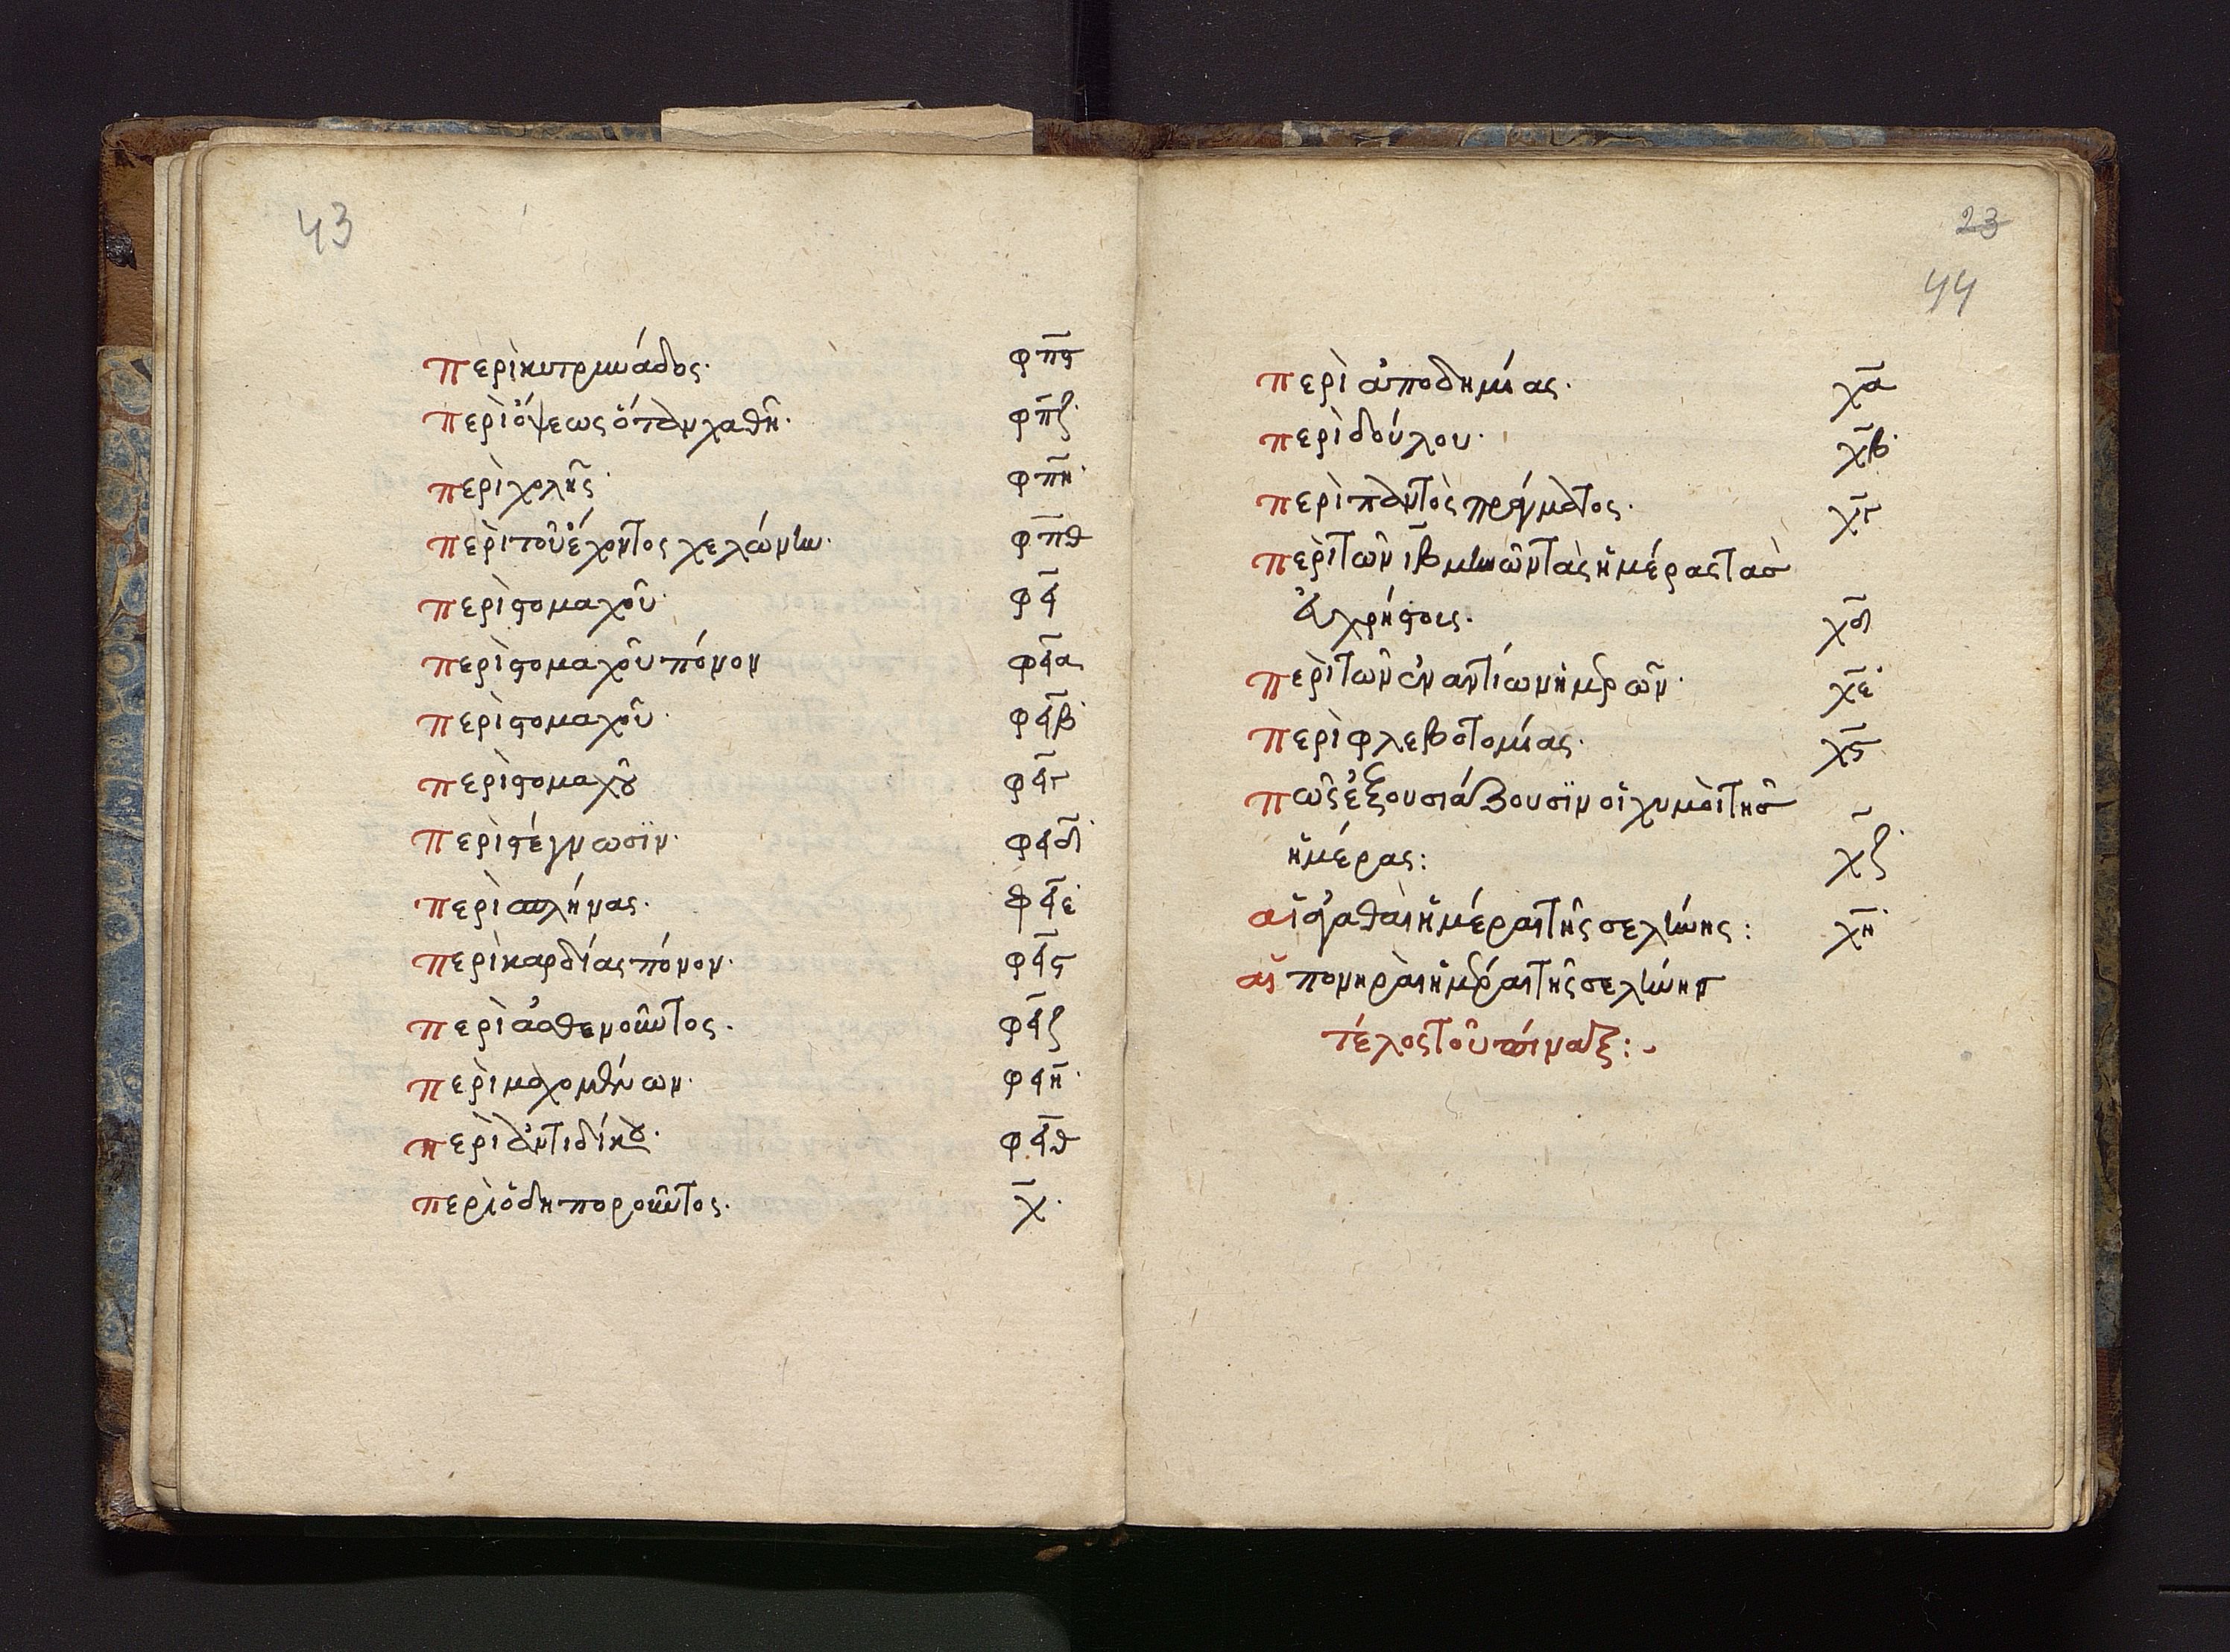 43
περὶ κιτρινάδος. φπϛ
περὶ ὄψεως ὅταν χαθῆ. φπζ
περὶ χολῆς φπη
περὶ τοῦ ἔχοντος χελώνιν. φπθ
περὶ στομαχοῦ φϟ
περὶ στομαχοῦ πόνον φϟα
περὶ στομαχοῦ. φϟβ
περὶ στομαχοῦ φϟγ
περὶ στέγνωσϊν. φϟδ
περὶ σπλήνας. φϟε
περὶ καρδίας πόνον. φϟϛ
περὶ ἀσθενοῦντος. φϟζ
περὶ μαχομένων. φϟη
περὶ ἀντιδίκου. φϟθ
περὶ ὁδηποροῦντος. χ
23
44
περὶ ἀποδημίας. χα
περὶ δούλου. χβ
περὶ παντὸς πράγματος. χγ
περὶ τῶν ιβ μηνῶν τὰς ἡμέρας τὰς
ἀχρήστοις. χδ
περὶ τῶν ἐναντίων ἡμερῶν. χε
περὶ φλεβοτομίας. χϛ
πῶς ἐξουσιάζουσϊν οἱ χυμοὶ τῆς
ἡμέρας: χζ
αἱ ἀγαθαὶ ἡμέραι τῆς σελήνης: χη
αἱ πονηραὶ ἡμέραι τῆς σελήνης
τέλος τοῦ πίναξ: